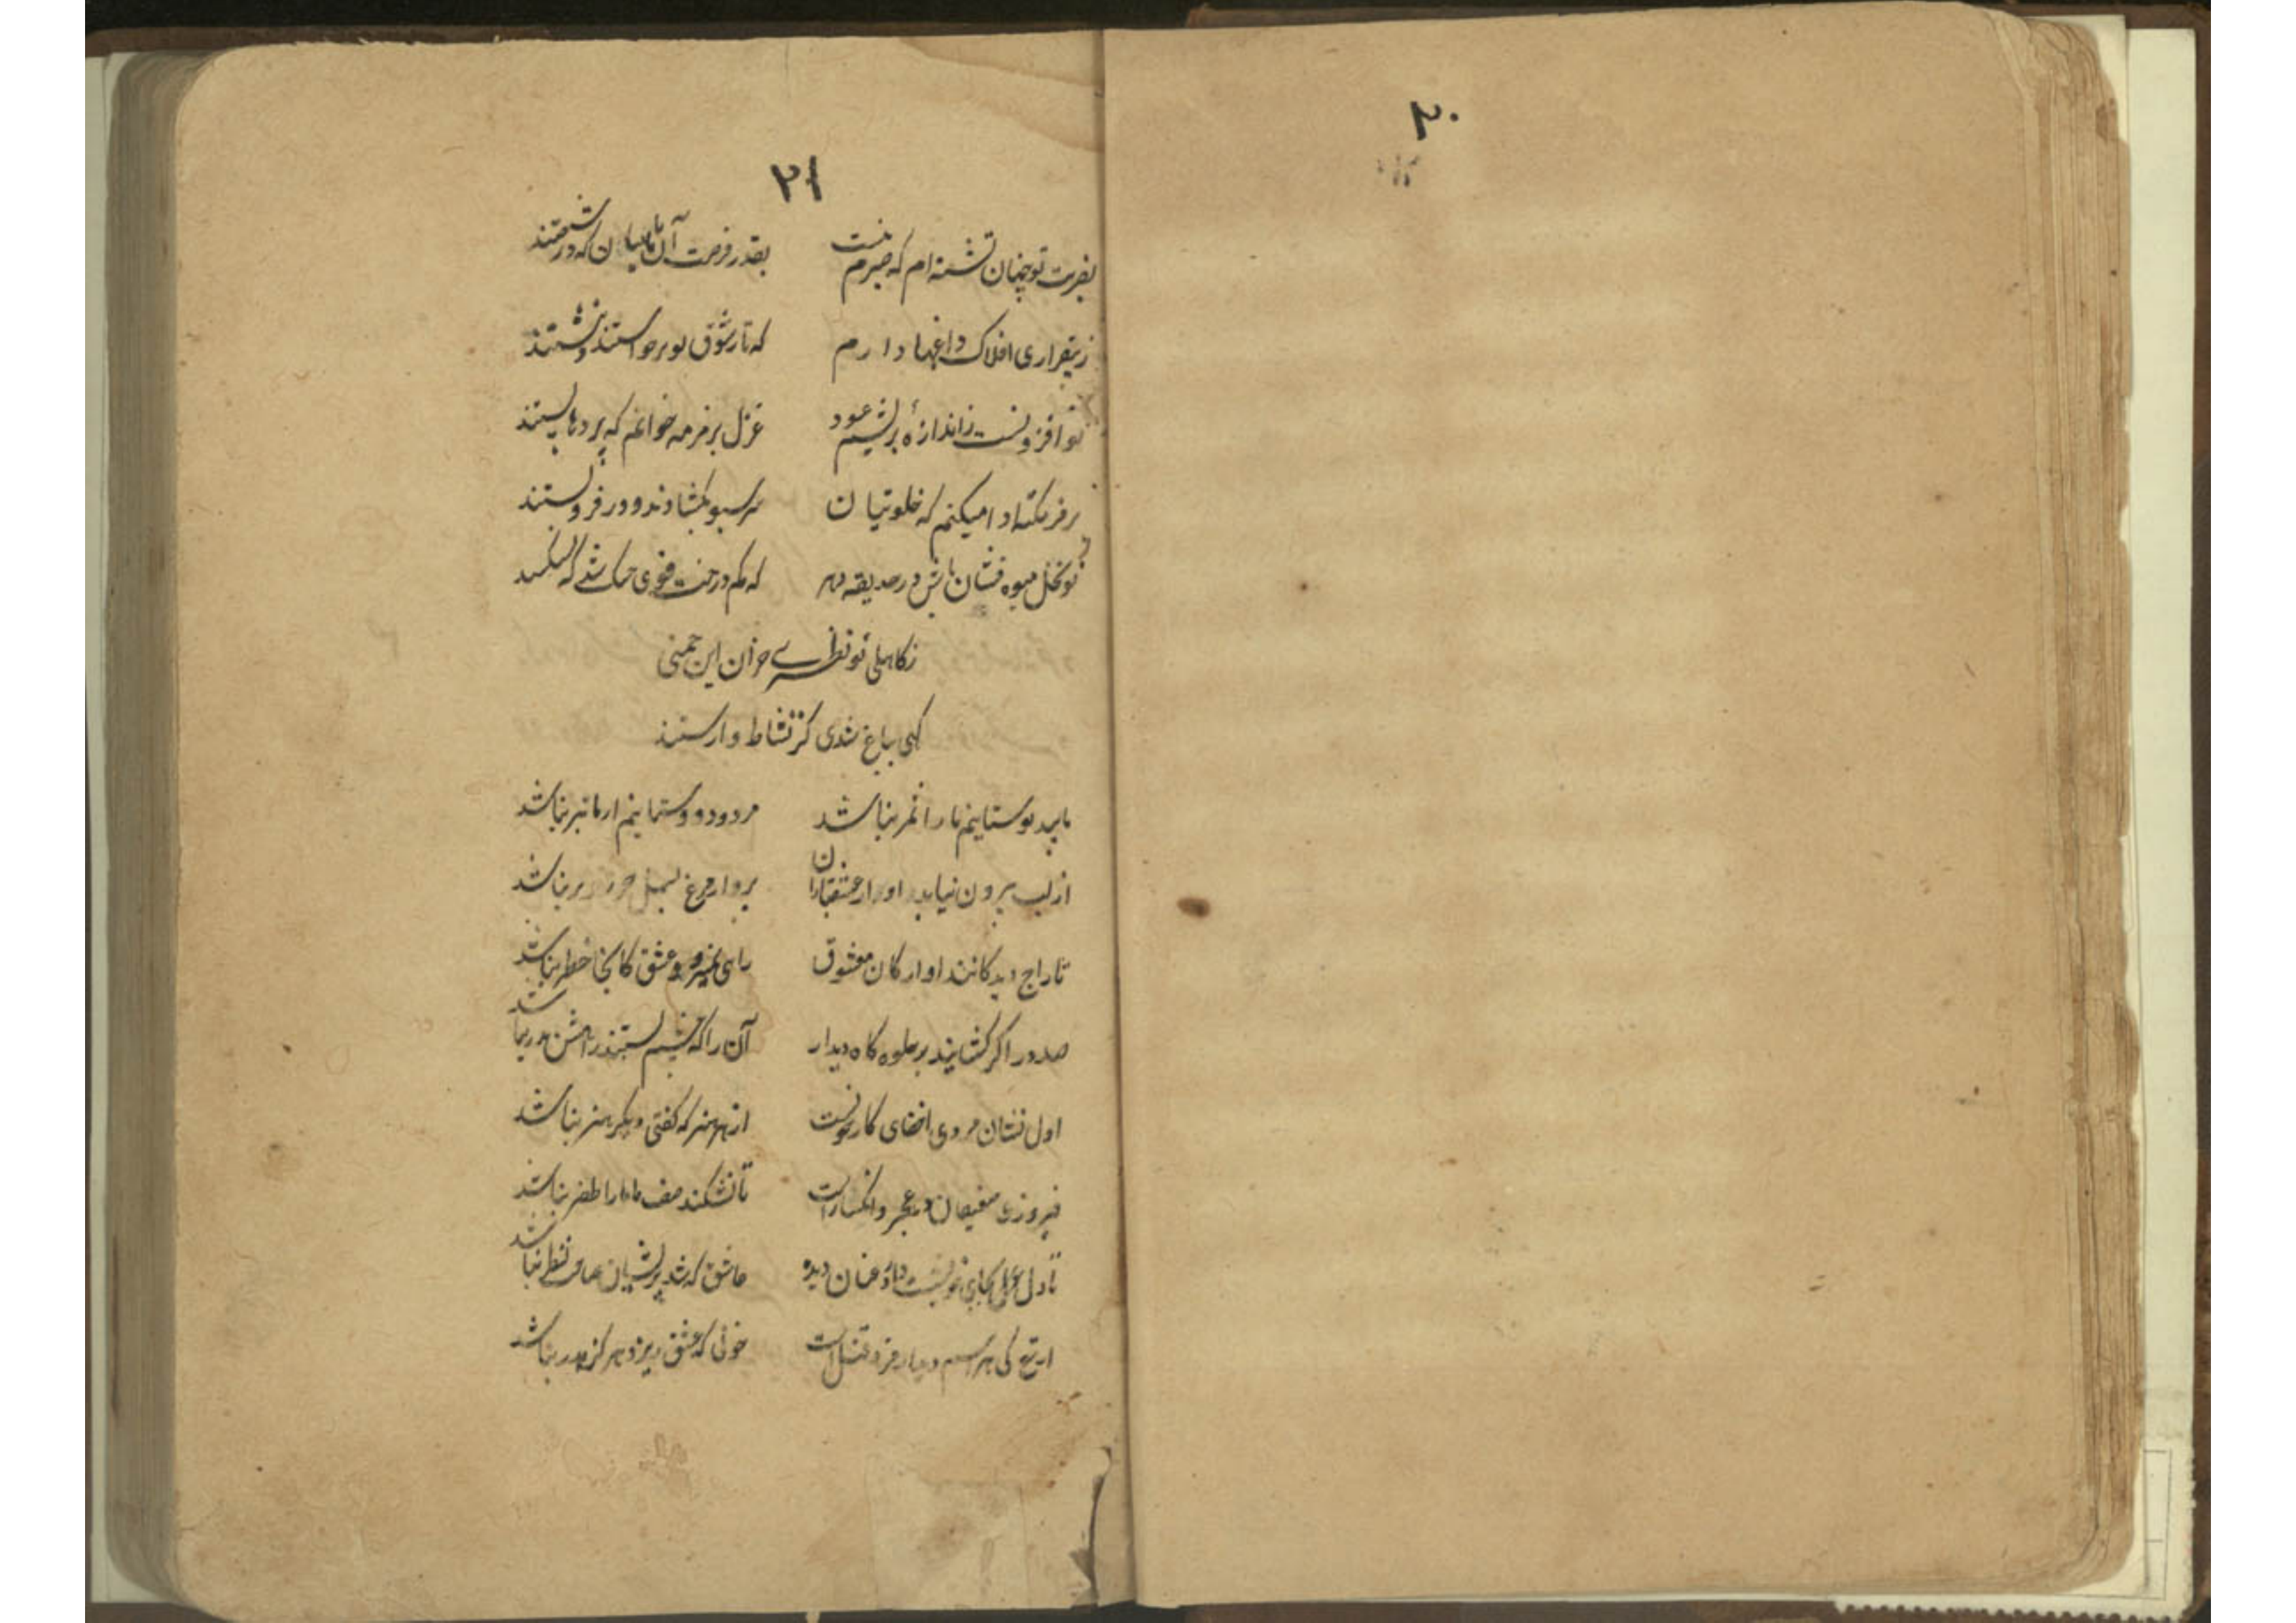 ۲۰
۲۱
بقربت تو چنان تشنه ام که صبرم نیست بقدر فرصت آن ماهیان که در شستند
ز بیقراری افلاک داغها دارم که تا ز شوق تو برخواستند ننشستند
تو افزونست ز اندازهٔ بریشم عود غزل برمزمه خوانم که پردها بستند
برمز نکته ادا میکنم که خلوتیان سر سبو بکشادند و در فروبستند
تو نخل میوه فشان باش در حدیقه دهر که هم درخت قوی
ز کاهلی تو نظیری خزان این چمنی
کهی بباغ شدی کز نشاط وارستند
ما پید بوستانیم ما را ثمر نباشد مردود دوستانیم از ما نبر نباشد
از لب برون نیاید اواز عشقبازان پرواز مرغ بسمل جز نباشد
تاراج دیدکانند اوارکان معشوق راهی عشق کانجا خطر نباشد
صد در اکر کشایند بر جلوه کاه دیدار آن را که چشم بستند راهش بدر نباشد
اول نشان مردی اخفای کار خود است از هر هنر که کفتی دیکر هنر نباشد
فیروزی ضعیفان در عجز و انکسار است تا نشکند صف ما ما را ظفر نباشد
تا دل بجای خویشست دارد عنان دیده عاشق که شد پریشان صاحب نظر نباشد
از تیغ کی هراسم دیدار مزد قتل است خونی که عشق ریزد هرکز هدر نباشد